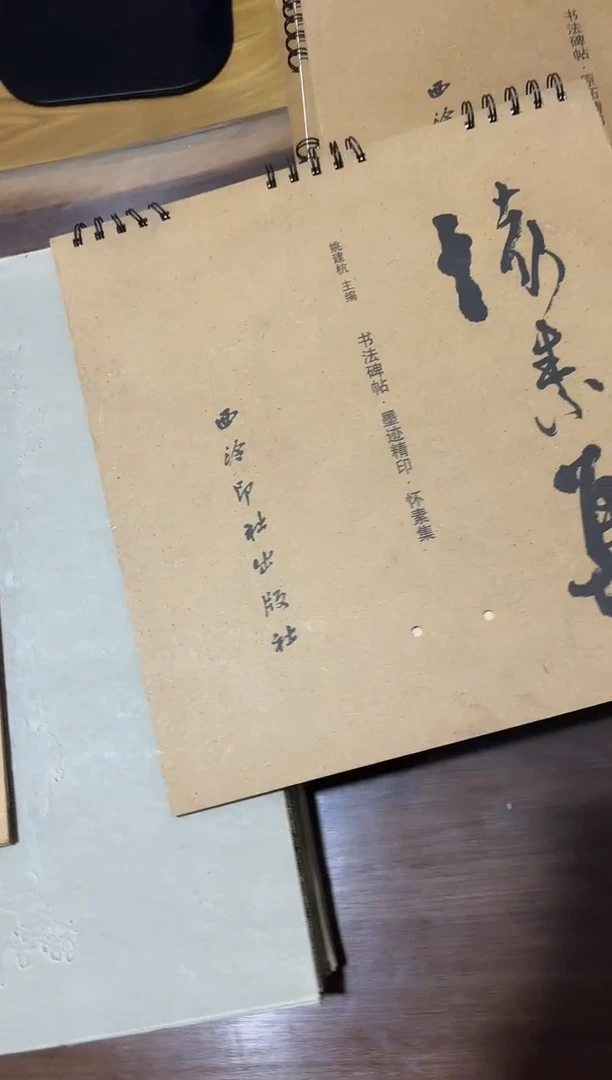 书法碑帖·原拓
西泠
怀素集
姚建杭 主编
书法碑帖·墨迹精印·怀素集
西泠印社出版社